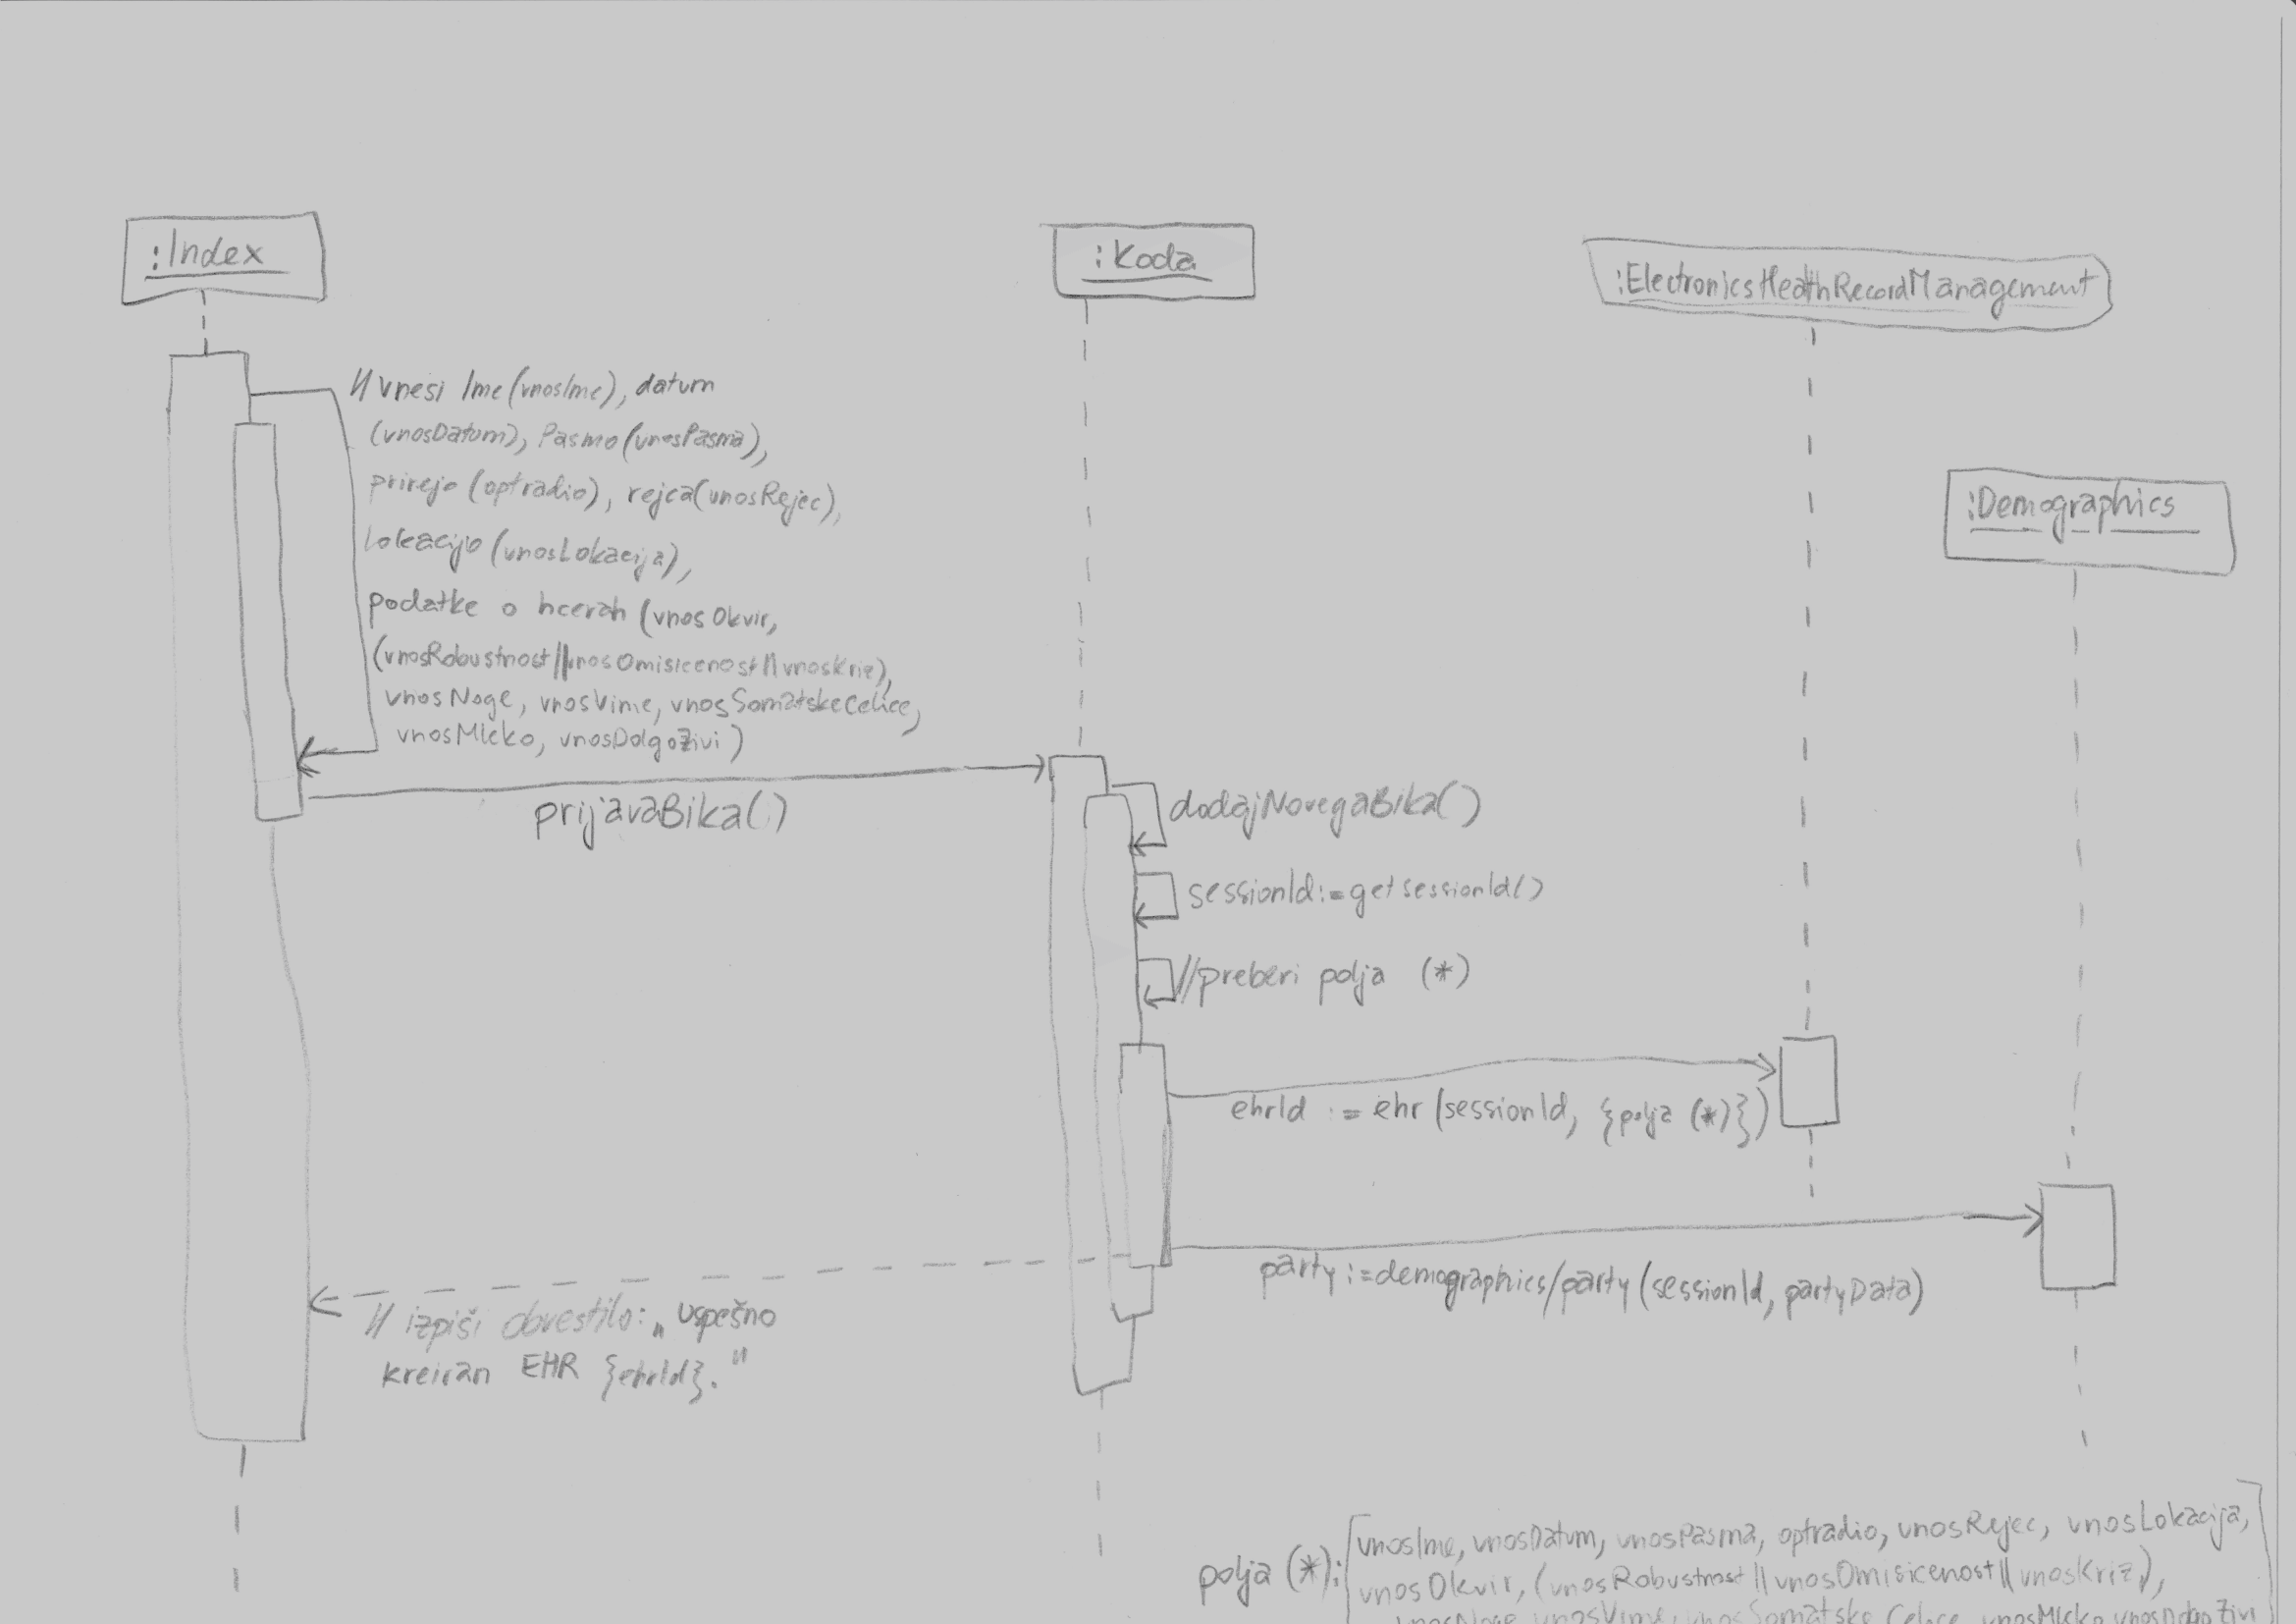 :Index
:Koda
:ElectronicsHeathRecordManagement
:Demographics
// vnesi Ime (vnosIme), datum
(vnosDatum), Pasmo (vnosPasma),
prirejo (optradio), rejca (vnosRejec),
lokacijo (vnosLokacija),
podatke o hcerah (vnosOkvir,
(vnosRobustnost||vnosOmisicenost||vnosKriz),
vnosNoge, vnosVime, vnosSomatskeCelice,
vnosMleko, vnosDolgoZivi)
prijavaBika()
dodajNovegaBika()
sessionId:=getSessionId()
//preberi polja (*)
ehrId := ehr (sessionId, {polja (*)})
party:=demographics/party (sessionId, partyData)
// izpiši obvestilo: „ uspešno
kreiran EHR {ehrId}."
polja (*):
vnosIme, vnosDatum, vnosPasma, optradio, vnosRejec, vnosLokacija,
vnosOkvir, (vnosRobustnost || vnosOmisicenost || vnosKriz),
vnosNoge, vnosVime, vnosSomatskeCelice, vnosMleko, vnosDolgoZivi